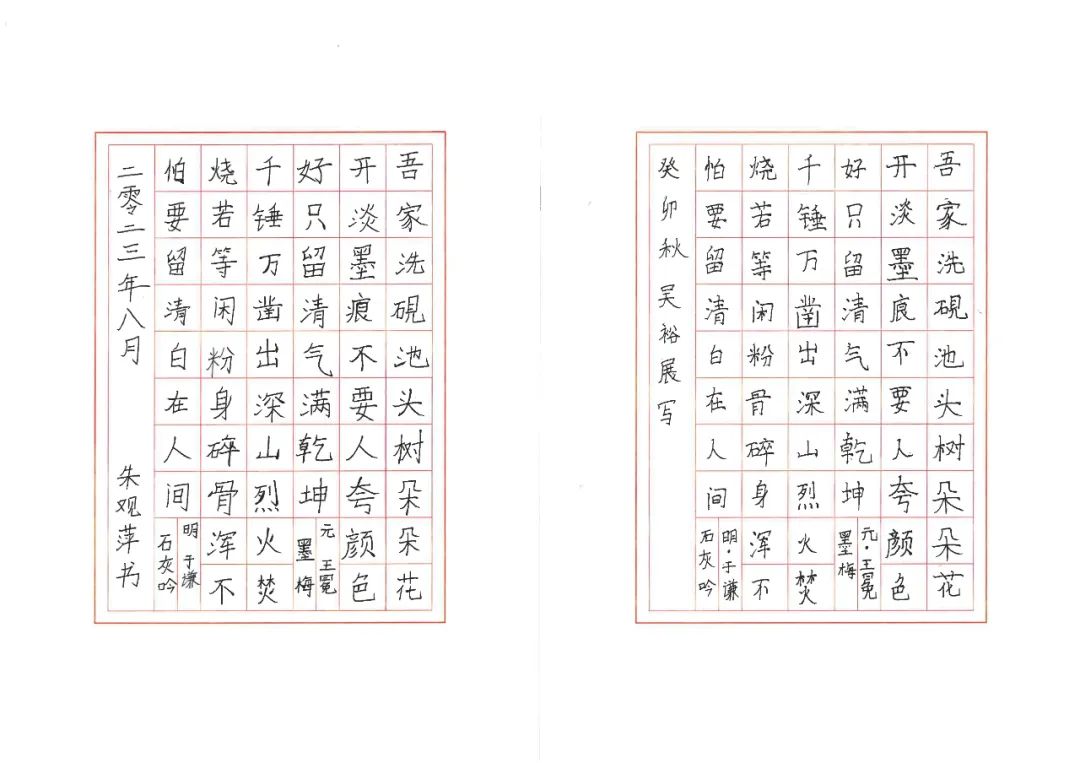 吾家洗硯池头树朵朵花
开淡墨痕不要人夸颜色
好只留清气满乾坤
元 王冕
墨梅
千锤万凿出深山烈火焚
烧若等闲粉身碎骨浑不
怕要留清白在人间
明 于谦
石灰吟
二零二三年八月 朱观萍书
吾家洗硯池头树朵朵花
开淡墨痕不要人夸颜色
好只留清气满乾坤
元·王冕
墨梅
千锤万凿出深山烈火焚
烧若等闲粉骨碎身浑不
怕要留清白在人间
明·于谦
石灰吟
癸卯秋吴裕展写